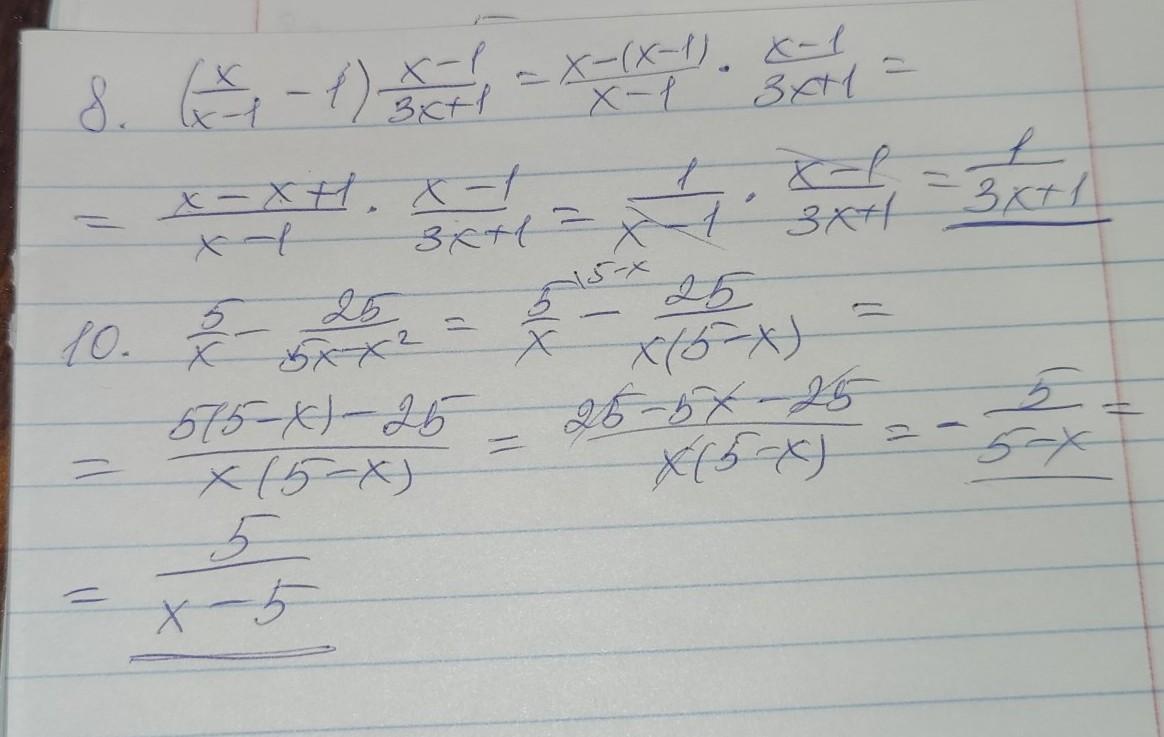 8. (x/(x-1) - 1) (x-1)/(3x+1) = (x-(x-1))/(x-1) · (x-1)/(3x+1) =
= (x-x+1)/(x-1) · (x-1)/(3x+1) = 1/(x-1) · (x-1)/(3x+1) = 1/(3x+1)
10. 5/x - 25/(5x-x²) = 5/x \5-x - 25/(x(5-x)) =
= (5(5-x)-25)/(x(5-x)) = (25-5x-25)/(x(5-x)) = - 5/(5-x) =
= 5/(x-5)